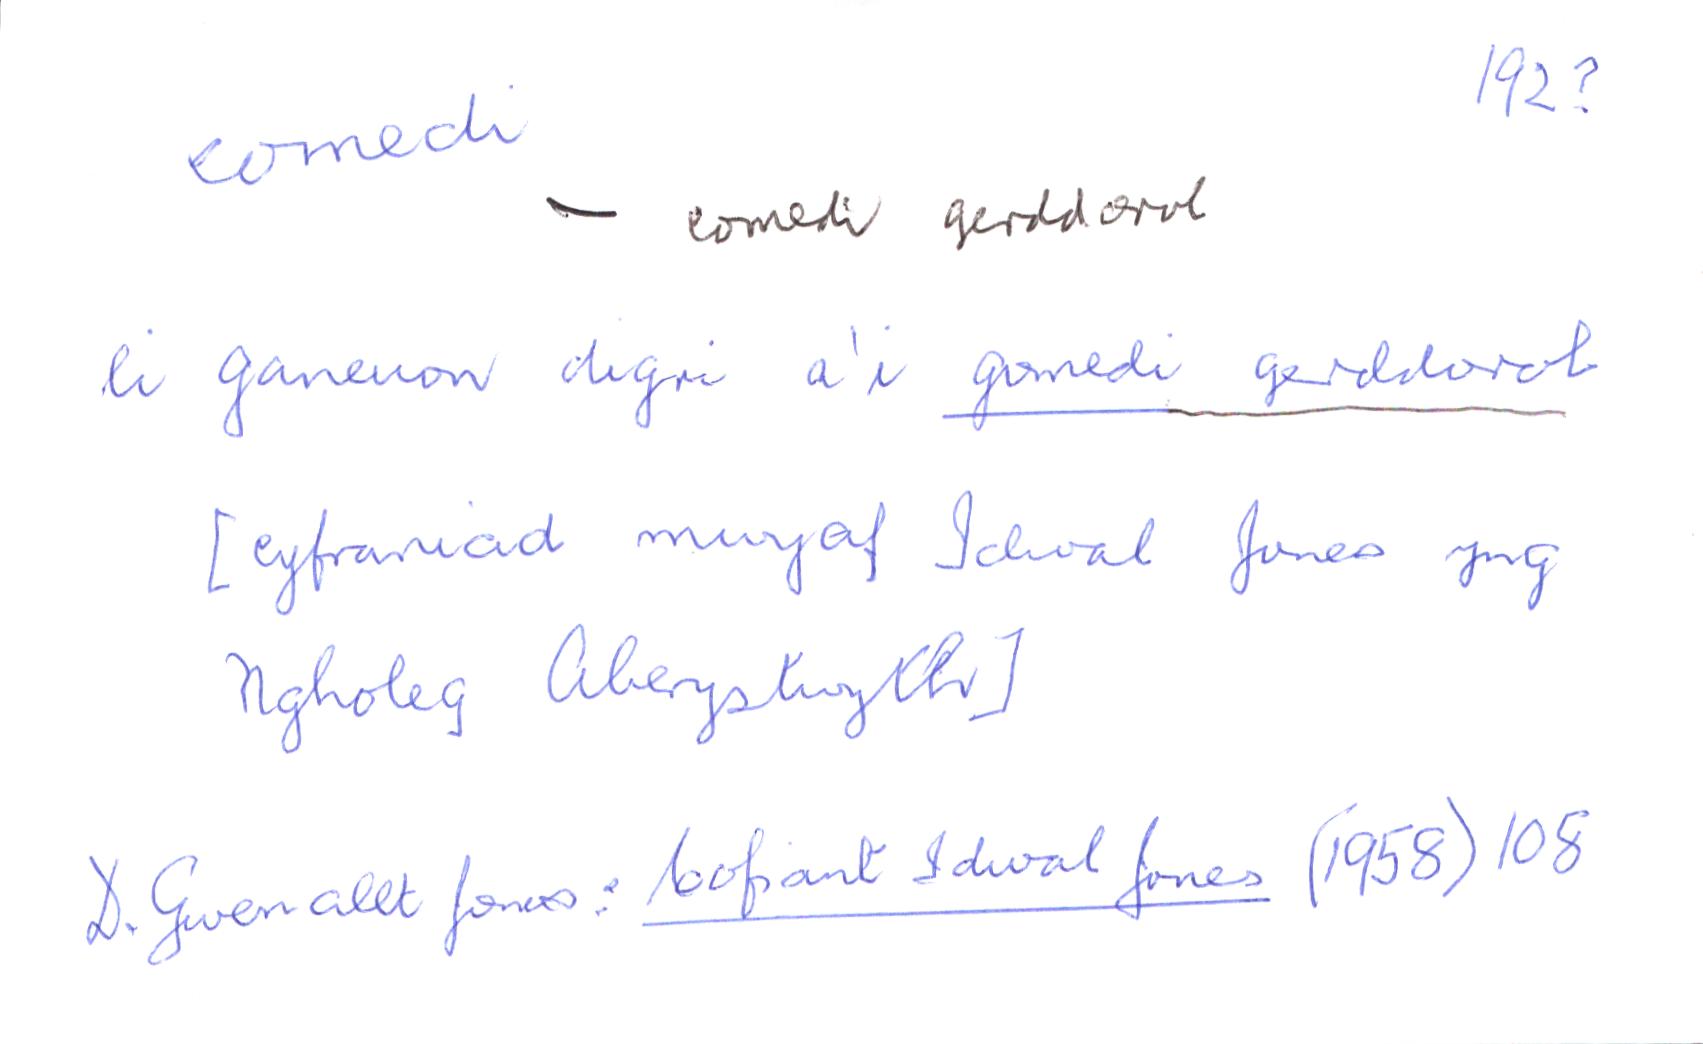 192?
comedi
– comedi gerddorol
ei ganeuon digri a'i gomedi gerddorol
[cyfraniad mwyaf Idwal Jones yng
Ngholeg Aberystwyth]
D. Gwenallt Jones: Cofiant Idwal Jones (1958) 108